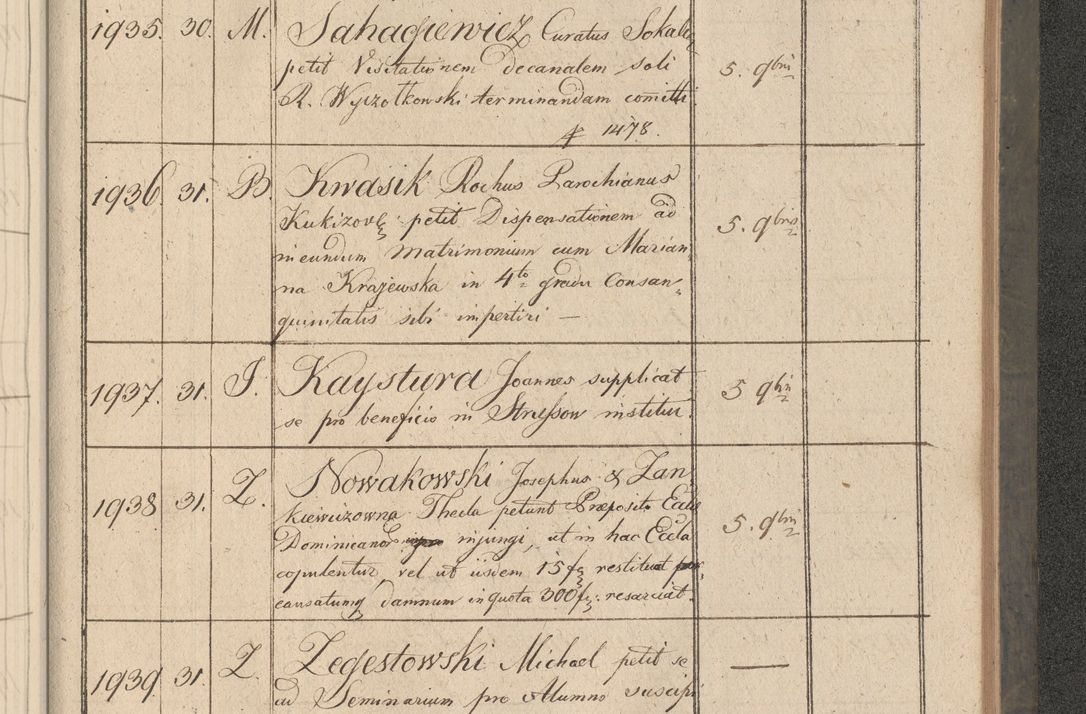 1935. 30. M. Sahagiewicz Curatus Sokal
petit Visitationem decanalem soli 5. 9bris
R. Wyszotkowski terminandam comitti
1478.
1936 31. B. Kwasik Rochus Parochianus
Kukizov petit Dispensationem ad 5. 9bris
ineundum Matrimonium cum Marian
na Krajewska in 4to gradu Consan
guinitatis sibi impertiri —
1937. 31. J. Kaystura Joannes supplicat 5 9bris
se pro beneficio in Strussow institui.
1938 31. Z. Nowakowski Josephus & Zan
kiewiczowna Thecla petunt Praeposito Eccla
Dominicanor injungi, ut in hac Eccla 5. 9bris
copulentur vel ut iisdem 15 f restituat
causatumq damnum in quota 300 f. resarciat.
1939 31. Z. Zegestowski Michael petit se —
ad Seminarium pro Alumno suscipi